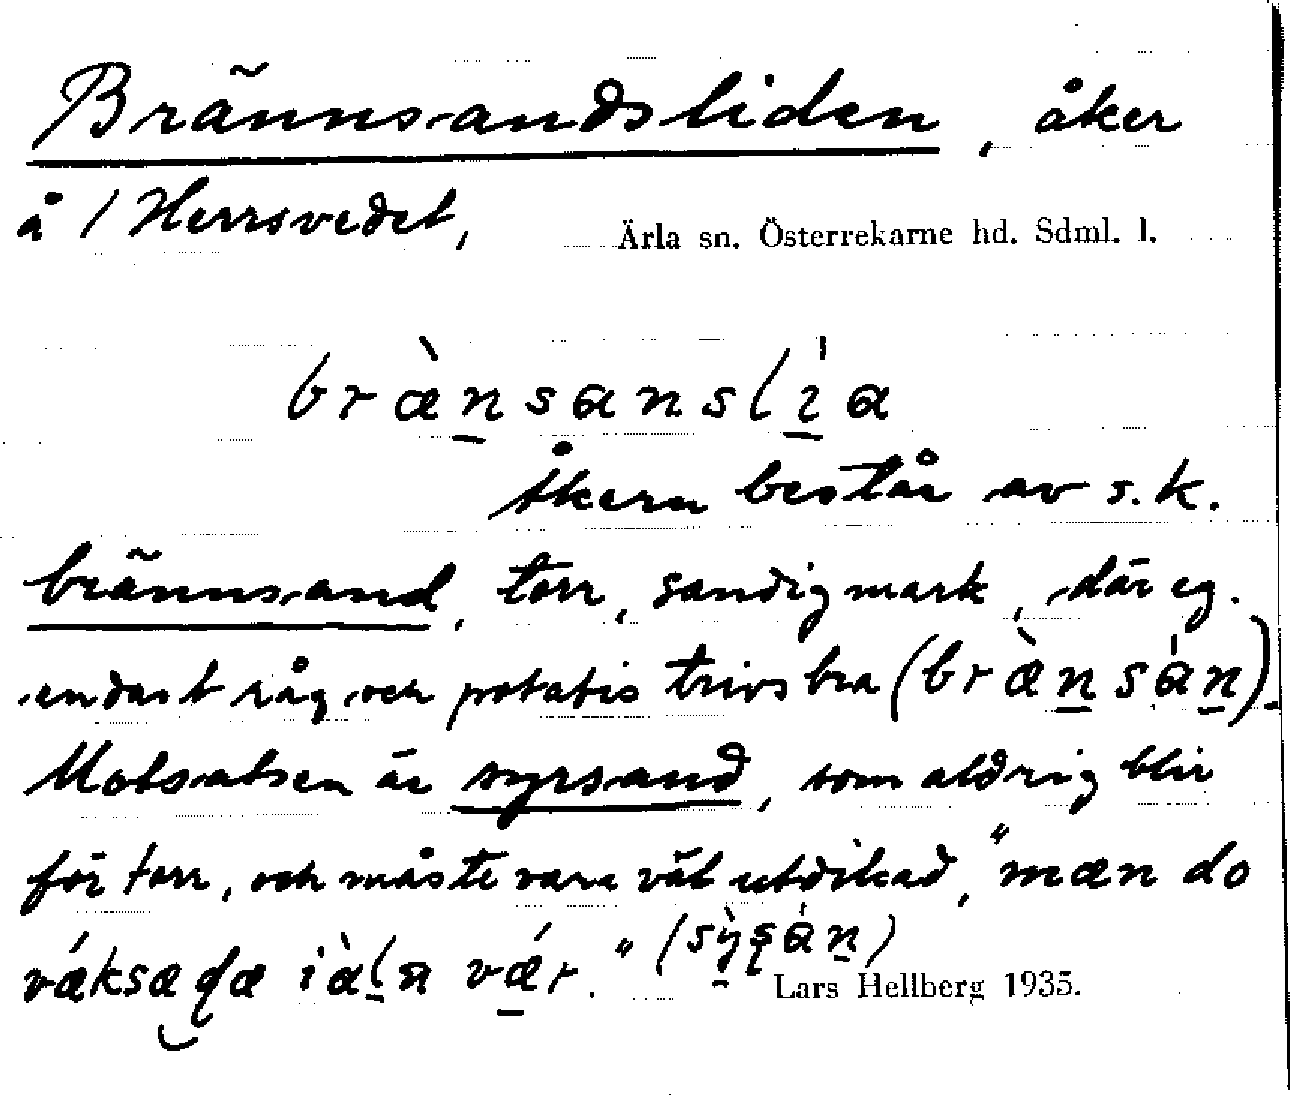 Brännsandsliden, åker
å 1 Herrsvedet, Ärla sn. Österrekarne hd. Sdml. l.
bræ̀nsanslía
Åkern består av s.k.
brännsand, torr, sandig mark, där eg.
endast råg och potatis trivs bra (bræ̀nsán).
Motsatsen är syrsand, som aldrig blir
för torr, och måste vara väl utdikad, "mæn do
iàln vǽr." (sỳsán)
Lars Hellberg 1935.